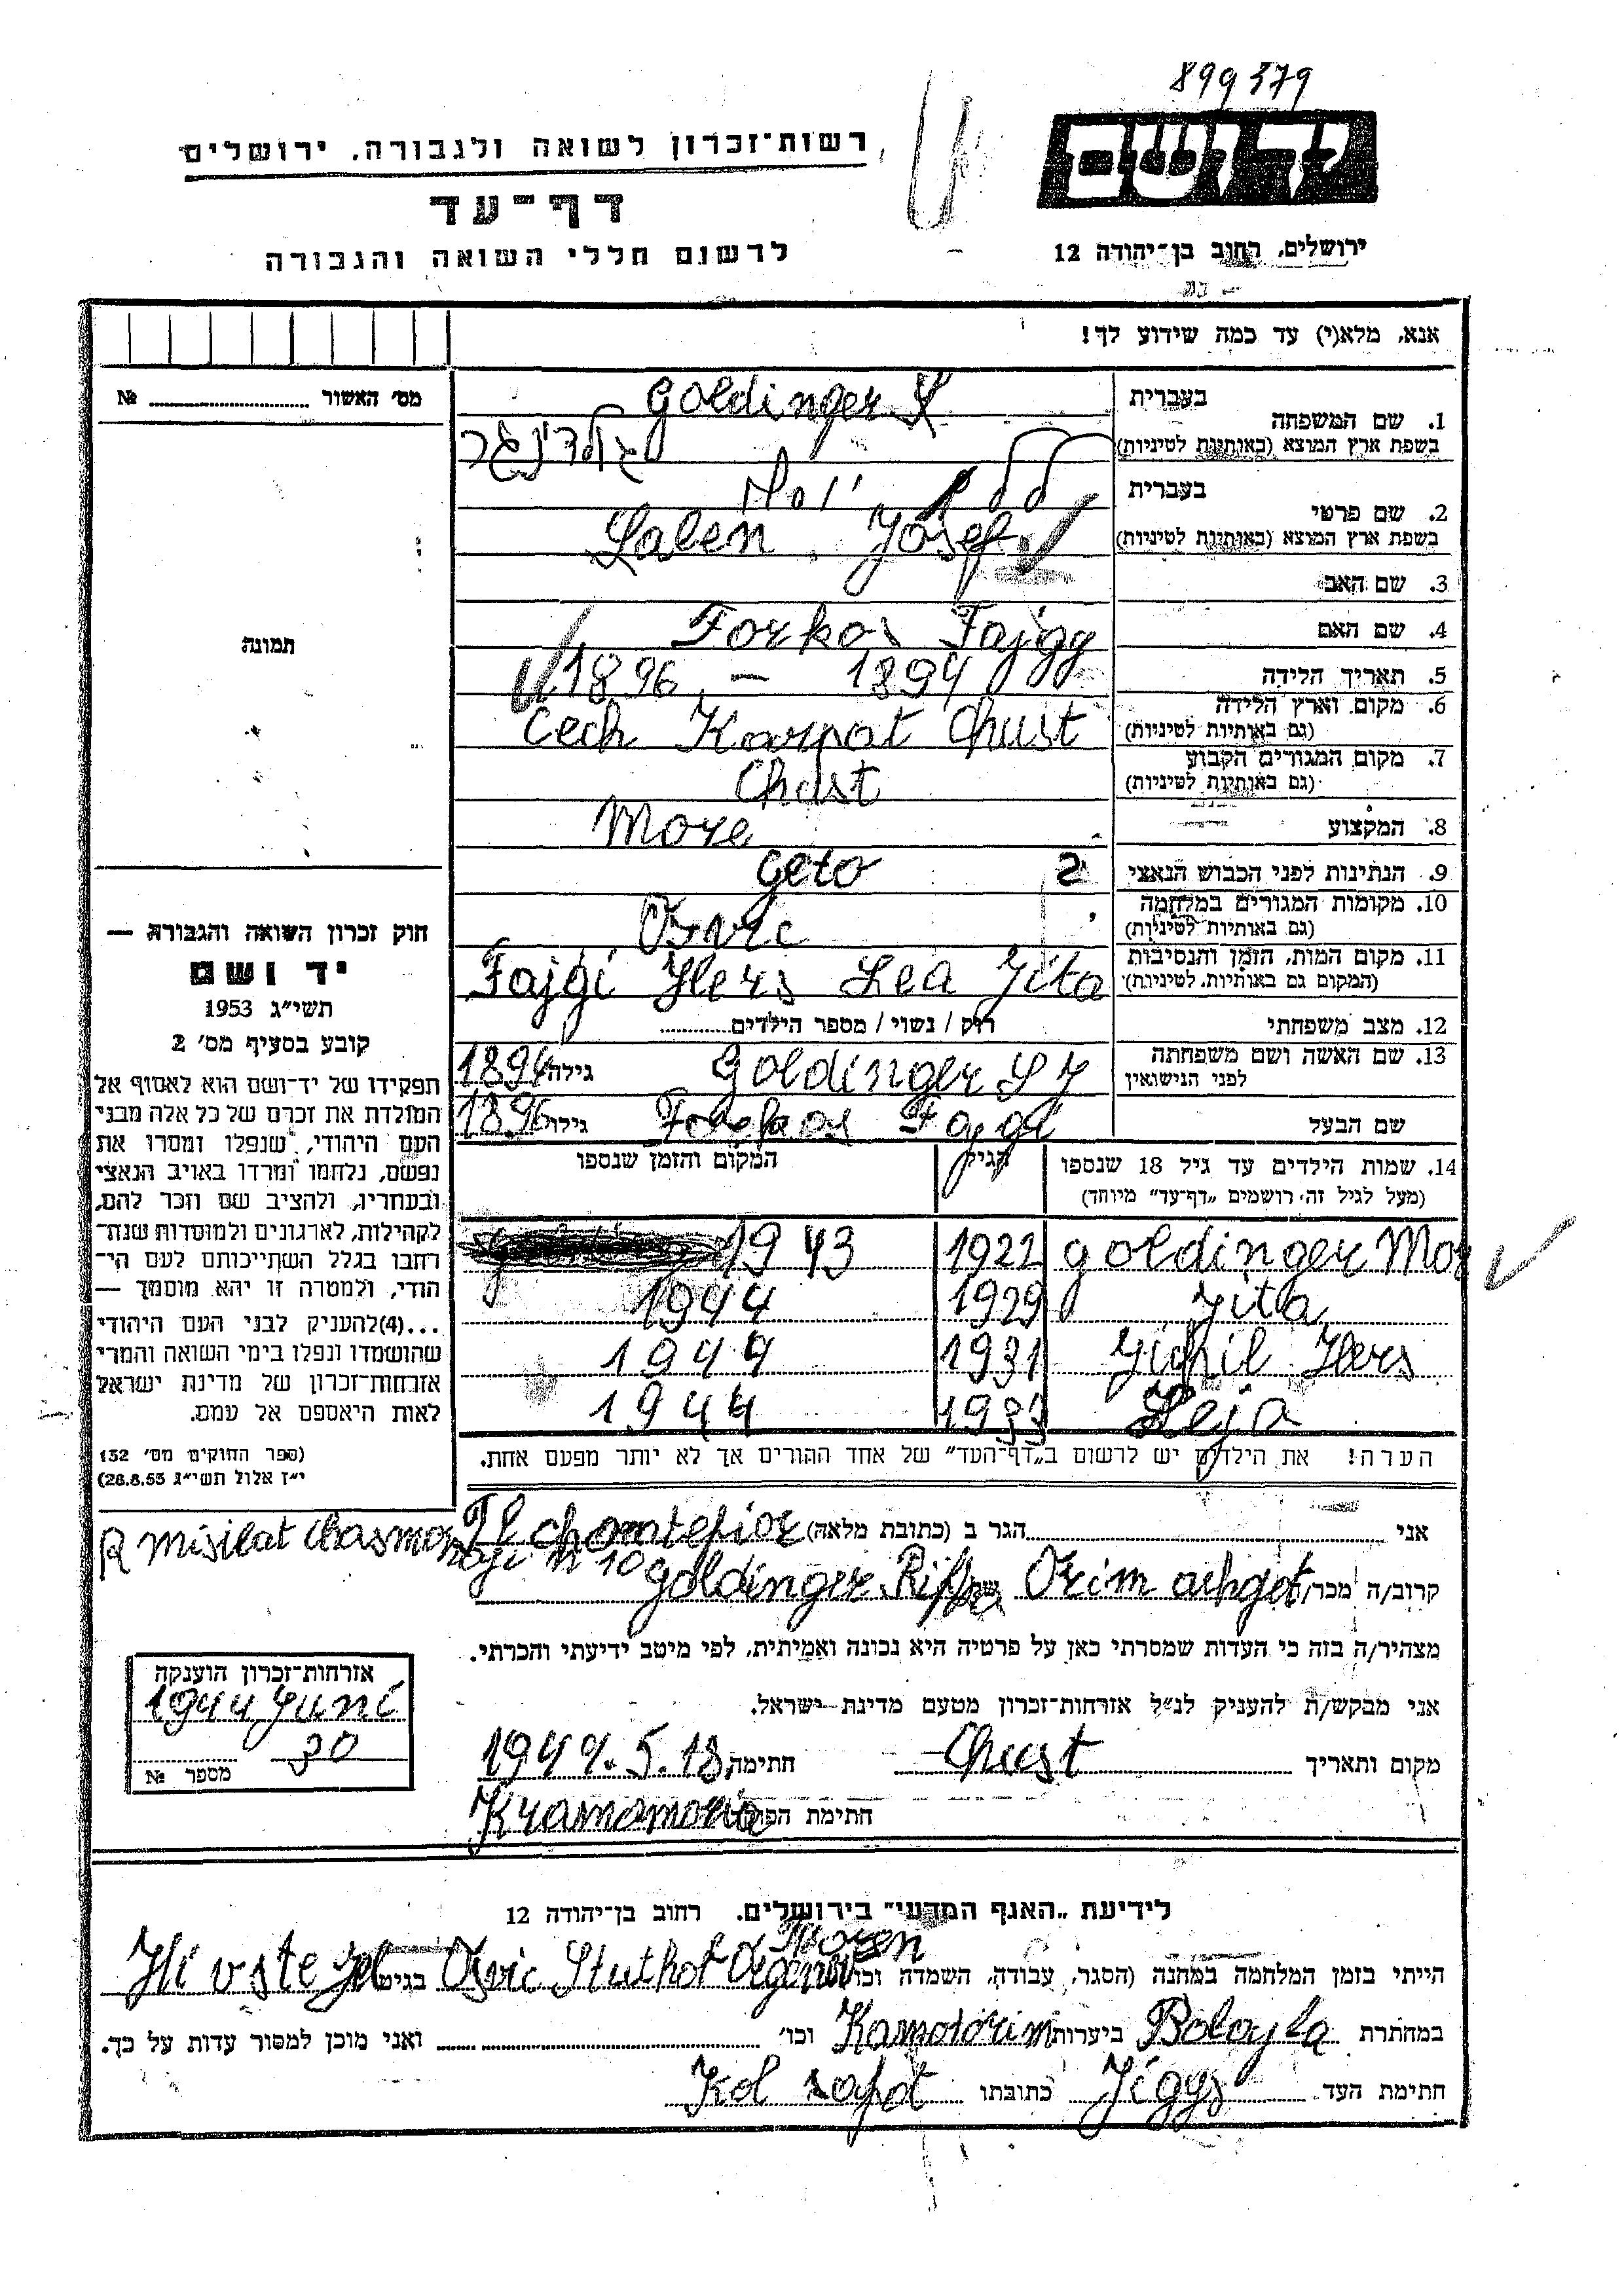 899379
רשות־זכרון לשואה ולגבורה, ירושלים
יד ושם
דף־עד
לרשום חללי השואה והגבורה
ירושלים, רחוב בן־יהודה 12
אנא, מלא(י) עד כמה שידוע לך!
מס׳ האשור № 
תמונה
1. שם המשפחה
בעברית
Goldinger
בשפת ארץ המוצא (באותיות לטיניות)
גולדינגר
2. שם פרטי
בעברית
בשפת ארץ המוצא (באותיות לטיניות)
Josef
3. שם האב
4. שם האם Forkos Fajgy
5. תאריך הלידה 1896 — 1894
6. מקום וארץ הלידה
(גם באותיות לטיניות)
Cech Karpat Chust
7. מקום המגורים הקבוע
(גם באותיות לטיניות)
Chust
8. המקצוע More
9. הנתינות לפני הכבוש הנאצי geto 2
10. מקומות המגורים במלחמה
(גם באותיות לטיניות)
Osvic
11. מקום המות, הזמן והנסיבות
(המקום גם באותיות לטיניות)
Fajgi Hers Lea Jita
12. מצב משפחתי רוק / נשוי / מספר הילדים
13. שם האשה ושם משפחתה
לפני הנישואין
Goldinger S J גילה 1894
שם הבעל Forkos Fajgi גילו 1896
14. שמות הילדים עד גיל 18 שנספו
(מעל לגיל זה, רושמים „דף־עד״ מיוחד)
הגיל
המקום והזמן שנספו
goldinger Mor 1922 1943
Jita 1929 1944
Jichil Hers 1931 1944
Leja 1933 1944
הערה! את הילדים יש לרשום ב„דף־העד״ של אחד ההורים אך לא יותר מפעם אחת.
חוק זכרון השואה והגבורה —
יד ושם
תשי״ג 1953
קובע בסעיף מס׳ 2
תפקידו של יד־ושם הוא לאסוף אל
המולדת את זכרם של כל אלה מבני
העם היהודי, שנפלו ומסרו את
נפשם, נלחמו ומרדו באויב הנאצי
ובעוזריו, ולהציב שם וזכר להם,
לקהילות, לארגונים ולמוסדות שנח־
רבו בגלל השתייכותם לעם הי־
הודי, ולמטרה זו יהא מוסמך —
...(4)להעניק לבני העם היהודי
שהושמדו ונפלו בימי השואה והמרי
אזרחות־זכרון של מדינת ישראל
לאות היאספם אל עמם.
(ספר החוקים מס׳ 132
י״ז אלול תשי״ג 28.8.53)
אני הגר ב (כתובת מלאה)
R misilat Chasmonaji n 10
קרוב/ה מכר/ה של goldinger
מצהיר/ה בזה כי העדות שמסרתי כאן על פרטיה היא נכונה ואמיתית, לפי מיטב ידיעתי והכרתי.
אני מבקש/ת להעניק לנ״ל אזרחות־זכרון מטעם מדינת ישראל.
מקום ותאריך Chust חתימה 1944. 5. 18
חתימת הפו
אזרחות־זכרון הוענקה
1944 Juni
30
מספר №
לידיעת „האגף המדעי״ בירושלים, רחוב בן־יהודה 12
הייתי בזמן המלחמה במחנה (הסגר, עבודה, השמדה וכו׳ Osvic Stuthof בגיטו
במחתרת ביערות וכו׳ ואני מוכן למסור עדות על כך.
חתימת העד כתובתו